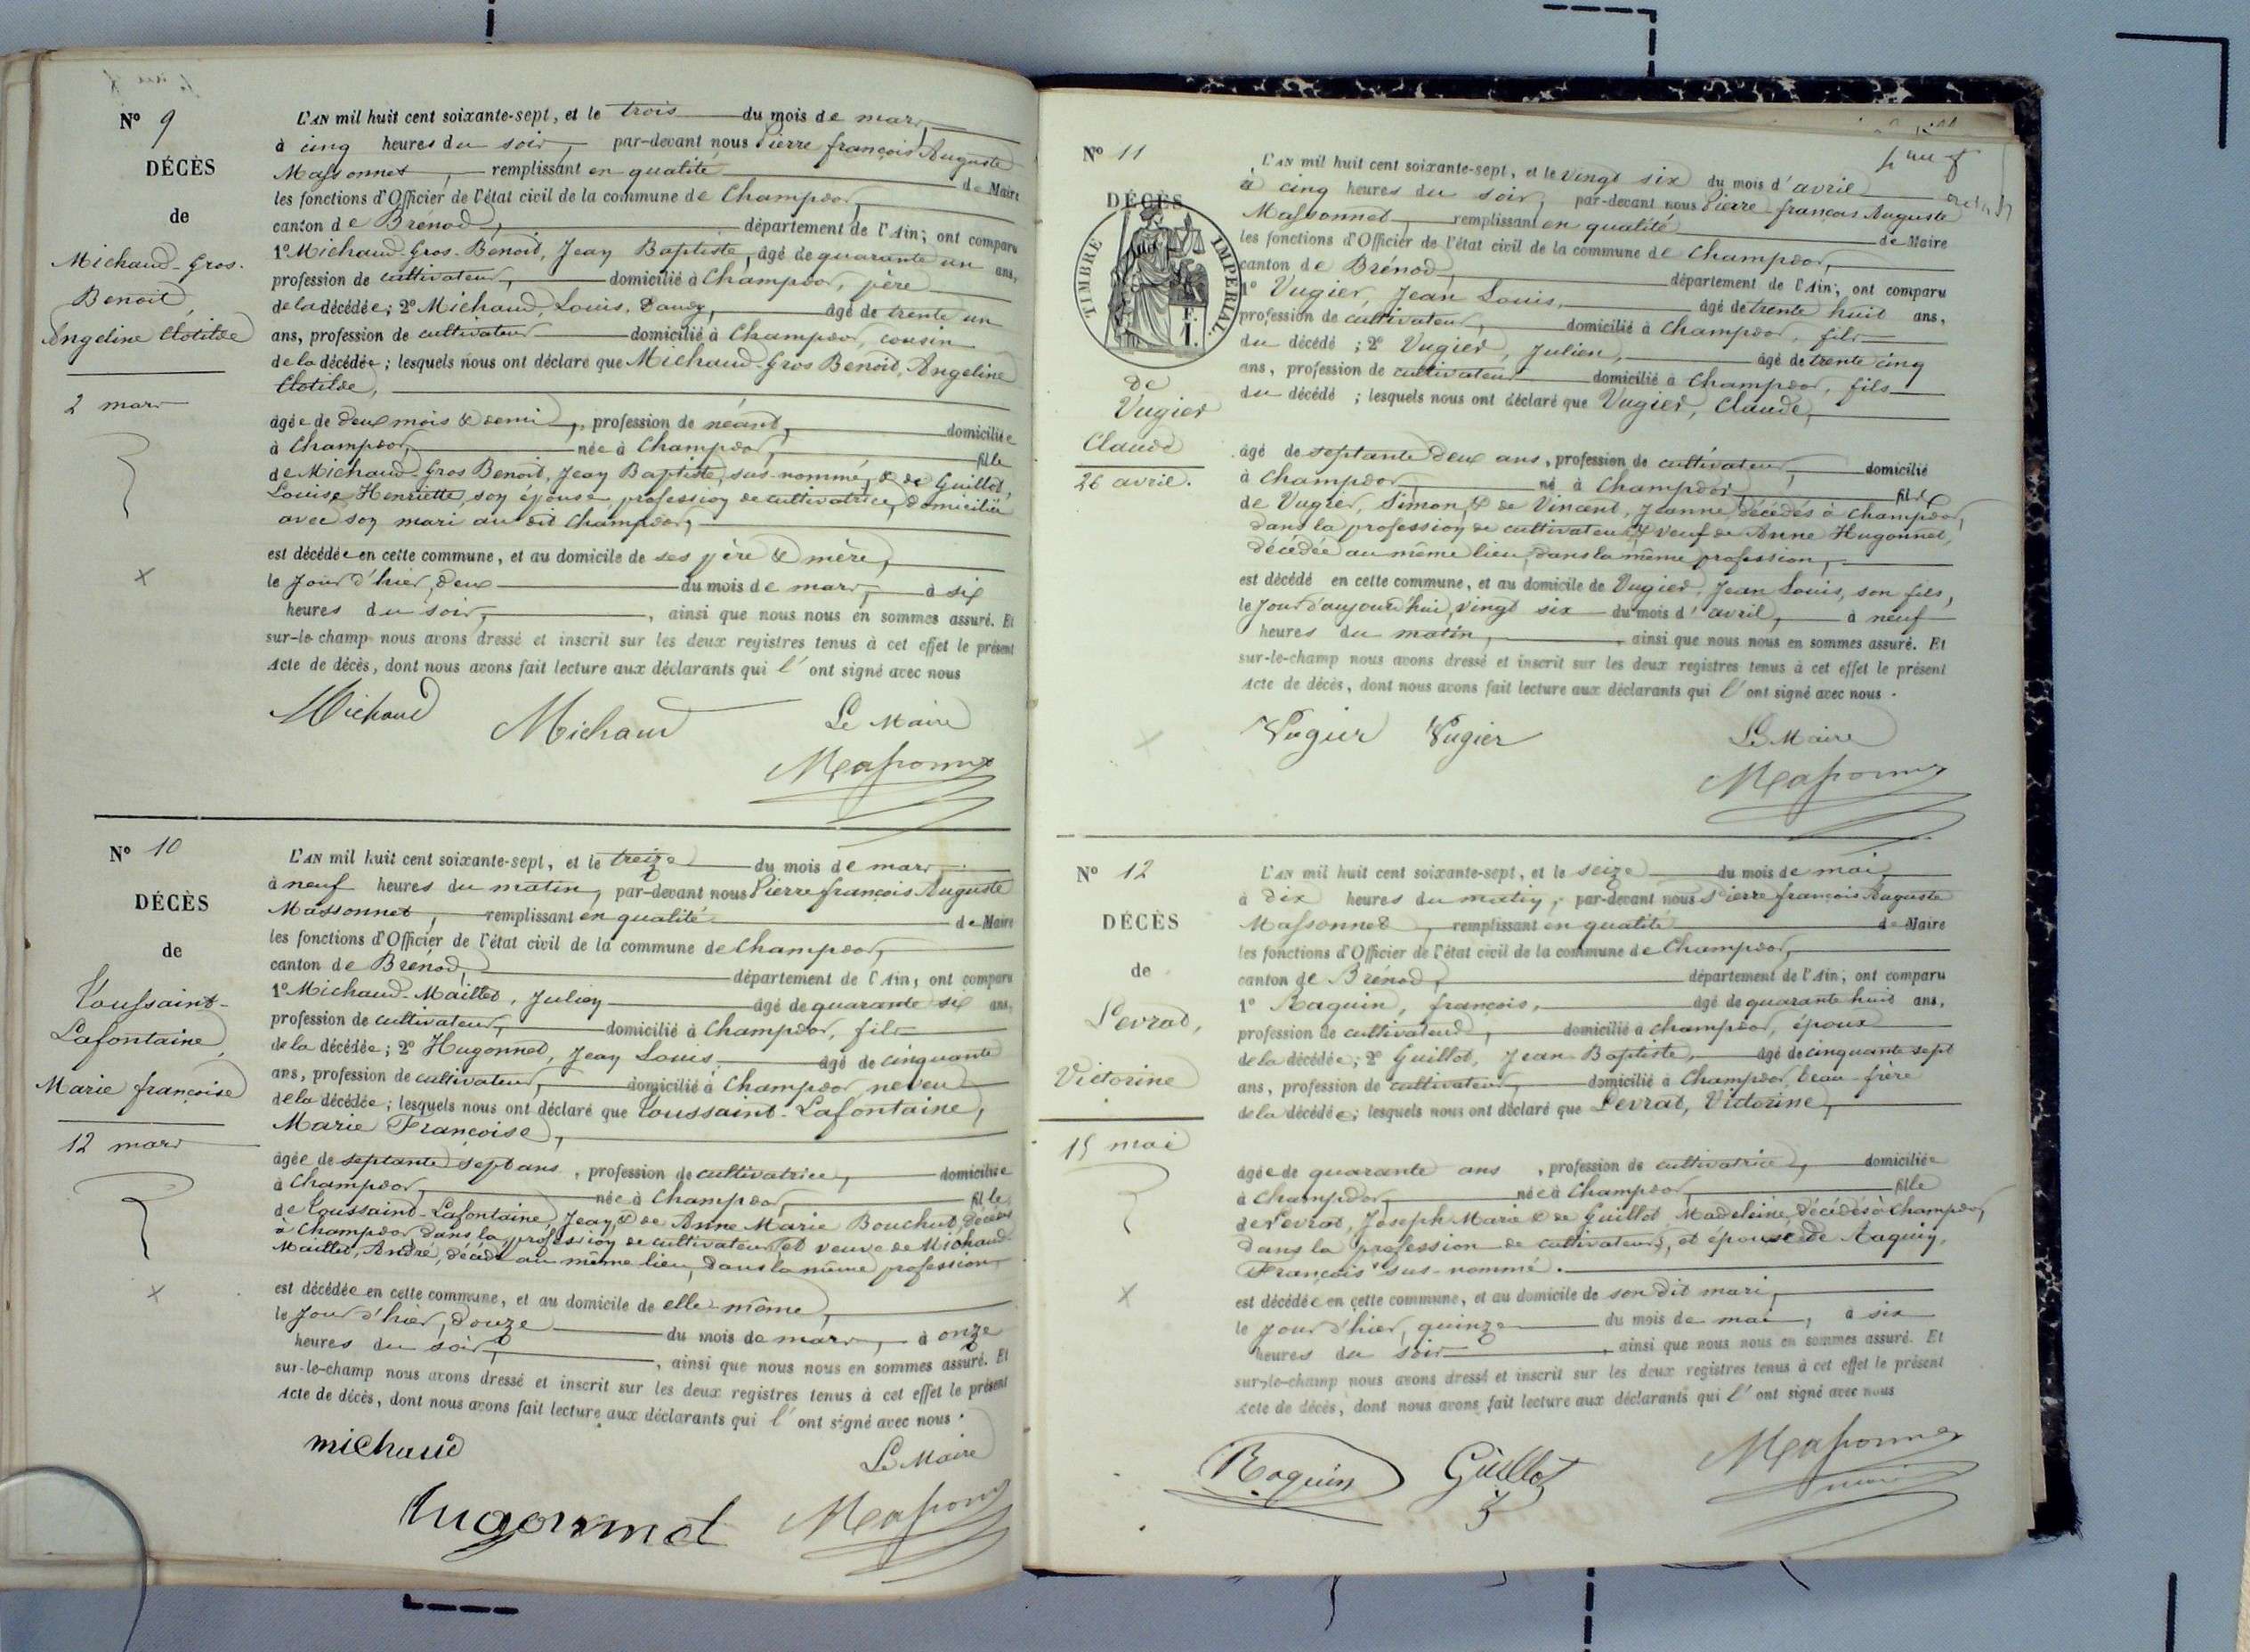 N° 9
DÉCÈS
de
Michaud-Gros.
Benoit,
Angeline Clotilde
2 mars
L'AN mil huit cent soixante-sept, et le trois du mois de mars,
à cinq heures du soir, par-devant nous Pierre françois Auguste
Massonnet, remplissant en qualité de Maire
les fonctions d'Officier de l'état civil de la commune de Champdor,
canton de Brénod, département de l'Ain; ont comparu
1° Michaud-Gros-Benoit, Jean Baptiste, âgé de quarante un ans,
profession de cultivateur, domicilié à Champdor, père
de la décédée; 2° Michaud, Louis, âgé de trente un
ans, profession de cultivateur domicilié à Champdor, cousin
de la décédée; lesquels nous ont déclaré que Michaud-Gros Benoit, Angeline
Clotilde,
âgée de deux mois & demi, profession de néant, domiciliée
à Champdor, née à Champdor, fille
de Michaud-Gros Benoit, Jean Baptiste, sus-nommé, & de Guillot,
Louise Henriette, son épouse, profession de cultivatrice, domiciliée
avec son mari au dit Champdor,
est décédée en cette commune, et au domicile de ses père & mère,
le jour d'hier, deux du mois de mars, à six
heures du soir, ainsi que nous nous en sommes assuré. Et
sur-le-champ nous avons dressé et inscrit sur les deux registres tenus à cet effet le présent
Acte de décès, dont nous avons fait lecture aux déclarants qui l' ont signé avec nous
Michaud Michaud Le Maire
Massonnet
N° 10
DÉCÈS
de
Toussaint-
Lafontaine,
Marie françoise
12 mars
L'AN mil huit cent soixante-sept, et le treize du mois de mars,
à neuf heures du matin, par-devant nous Pierre françois Auguste
Massonnet, remplissant en qualité de Maire
les fonctions d'Officier de l'état civil de la commune de Champdor,
canton de Brénod, département de l'Ain; ont comparu
1° Michaud-Maillet, Julien âgé de quarante six ans,
profession de cultivateur, domicilié à Champdor, fils
de la décédée; 2° Hugonnet, Jean Louis âgé de cinquante
ans, profession de cultivateur, domicilié à Champdor, neveu
de la décédée; lesquels nous ont déclaré que Toussaint-Lafontaine,
Marie Françoise,
âgée de septante sept ans, profession de cultivatrice, domiciliée
à Champdor, née à Champdor, fille
de Toussaint-Lafontaine, Jean, & de Anne Marie Bouchut, décédés
à Champdor, dans la profession de cultivateur, et veuve de Michaud
Maillet, André, décédé au même lieu, dans la même profession
est décédée en cette commune, et au domicile de elle-même,
le jour d'hier, douze du mois de mars, à onze
heures du soir, ainsi que nous nous en sommes assuré. Et
sur-le-champ nous avons dressé et inscrit sur les deux registres tenus à cet effet le présent
Acte de décès, dont nous avons fait lecture aux déclarants qui l' ont signé avec nous.
michaud Le Maire
hugonnet Massonnet
N° 11
DÉCÈS
TIMBRE IMPÉRIAL
de
Vugier
Claude
26 avril.
L'AN mil huit cent soixante-sept, et le vingt six du mois d'avril
à cinq heures du soir, par-devant nous Pierre francois Auguste
Massonnet, remplissant en qualité de Maire
les fonctions d'Officier de l'état civil de la commune de Champdor,
canton de Brénod, département de l'Ain; ont comparu
1° Vugier, Jean Louis, âgé de trente huit ans,
profession de cultivateur, domicilié à Champdor, fils
du décédé; 2° Vugier, Julien, âgé de trente cinq
ans, profession de cultivateur domicilié à Champdor, fils
du décédé; lesquels nous ont déclaré que Vugier, Claude,
âgé de septante deux ans, profession de cultivateur, domicilié
à Champdor, né à Champdor, fils
de Vugier, Simon, & de Vincent, Jeanne, décédés à Champdor,
dans la profession de cultivateur, & veuf de Anne Hugonnet,
décédée au même lieu, dans la même profession,
est décédé en cette commune, et au domicile de Vugier, Jean Louis, son fils,
le jour d'aujourd'hui, vingt six du mois d'avril, à neuf
heures du matin, ainsi que nous nous en sommes assuré. Et
sur-le-champ nous avons dressé et inscrit sur les deux registres tenus à cet effet le présent
Acte de décès, dont nous avons fait lecture aux déclarants qui l' ont signé avec nous.
Vugier Vugier Le Maire
Massonnet
N° 12
DÉCÈS
de
Levrat,
Victorine
15 mai
L'AN mil huit cent soixante-sept, et le seize du mois de mai,
à dix heures du matin, par-devant nous Pierre françois Auguste
Massonnet, remplissant en qualité de Maire
les fonctions d'Officier de l'état civil de la commune de Champdor,
canton de Brénod, département de l'Ain; ont comparu
1° Raquin, françois, âgé de quarante huit ans,
profession de cultivateur, domicilié à Champdor, époux
de la décédée; 2° Guillot, Jean Baptiste, âgé de cinquante sept
ans, profession de cultivateur, domicilié à Champdor, beau-frère
de la décédée; lesquels nous ont déclaré que Levrat, Victorine,
âgée de quarante ans, profession de cultivatrice, domiciliée
à Champdor, née à Champdor, fille
de Levrat, Joseph Marie & de Guillot Madeleine, décédés à Champdor,
dans la profession de cultivateurs, et épouse de Raquin,
François sus-nommé.
est décédée en cette commune, et au domicile de son dit mari,
le jour d'hier, quinze du mois de mai, à six
heures du soir, ainsi que nous nous en sommes assuré. Et
sur-le-champ nous avons dressé et inscrit sur les deux registres tenus à cet effet le présent
Acte de décès, dont nous avons fait lecture aux déclarants qui l' ont signé avec nous
Raquin Guillot Massonnet